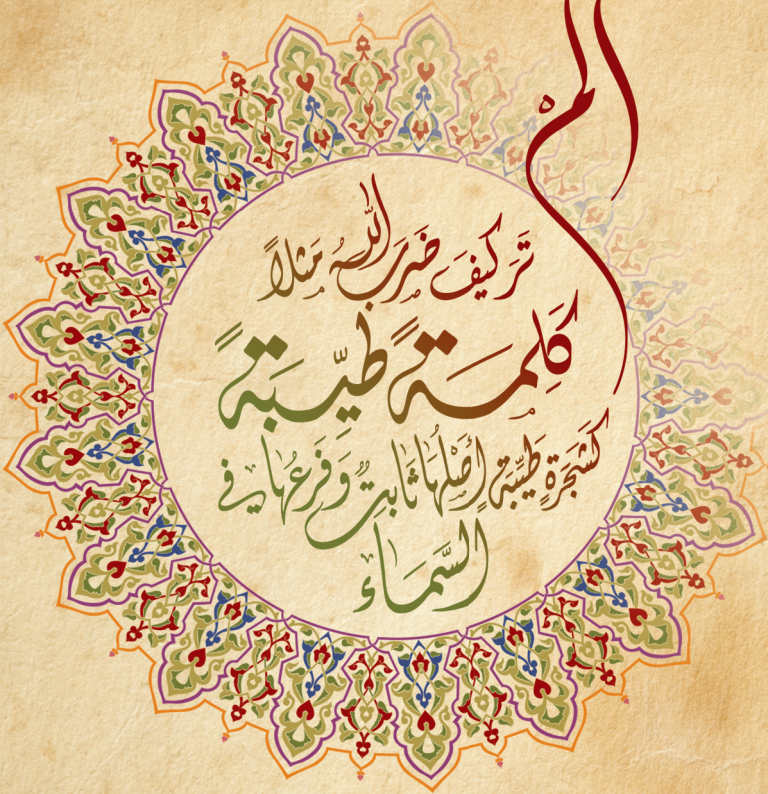 ألم
تَرَ كَيفَ ضَرَبَ اللّٰهُ مَثلاً
كَلِمَةً طَيِّبَةً
كَشَجَرَةٍ طَيِّبَةٍ أَصْلُهَا ثَابِتٌ وَفَرعُهَا فِي
السَّمَاءِ